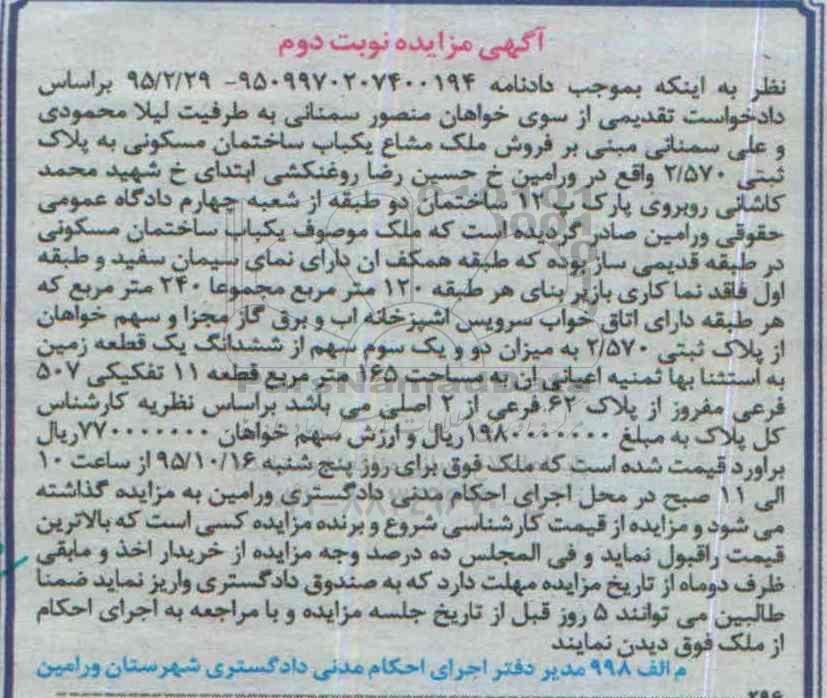 آگهی مزایده نوبت دوم
نظر به اینکه بموجب دادنامه ۹۵۰۹۹۷۰۲۰۷۴۰۰۱۹۴- ۹۵/۲/۲۹ براساس
دادخواست تقدیمی از سوی خواهان منصور سمنانی به طرفیت لیلا محمودی
و علی سمنانی مبنی بر فروش ملک مشاع یکباب ساختمان مسکونی به پلاک
ثبتی ۲/۵۷۰ واقع در ورامین خ حسین رضا روغنکشی ابتدای خ شهید محمد
کاشانی روبروی پارک ۱۲ ساختمان دو طبقه از شعبه چهارم دادگاه عمومی
حقوقی ورامین صادر گردیده است که ملک موصوف یکباب ساختمان مسکونی
در طبقه قدیمی ساز بوده که طبقه همکف ان دارای نمای سیمان سفید و طبقه
اول فاقد نما کاری بازیر بنای هر طبقه ۱۲۰ متر مربع مجموعا ۲۴۰ متر مربع که
هر طبقه دارای اتاق خواب سرویس اشپزخانه اب و برق گاز مجزا و سهم خواهان
از پلاک ثبتی ۲/۵۷۰ به میزان دو و یک سوم سهم از ششدانگ یک قطعه زمین
به استثنا بها ثمنیه اعیانی ان به مساحت ۱۶۵ متر مربع قطعه ۱۱ تفکیکی ۵۰۷
فرعی مفروز از پلاک ۶۲ فرعی از ۲ اصلی می باشد براساس نظریه کارشناس
کل پلاک به مبلغ ۱۹۸۰۰۰۰۰۰۰ ریال و ارزش سهم خواهان ۷۷۰۰۰۰۰۰۰ ریال
براورد قیمت شده است که ملک فوق برای روز پنج شنبه ۹۵/۱۰/۱۶ از ساعت ۱۰
الی ۱۱ صبح در محل اجرای احکام مدنی دادگستری ورامین به مزایده گذاشته
می شود و مزایده از قیمت کارشناسی شروع و برنده مزایده کسی است که بالاترین
قیمت راقبول نماید و فی المجلس ده درصد وجه مزایده از خریدار اخذ و مابقی
ظرف دوماه از تاریخ مزایده مهلت دارد که به صندوق دادگستری واریز نماید ضمنا
طالبین می توانند ۵ روز قبل از تاریخ جلسه مزایده و با مراجعه به اجرای احکام
از ملک فوق دیدن نمایند
م الف ۹۹۸ مدیر دفتر اجرای احکام مدنی دادگستری شهرستان ورامین
ParsNamadData